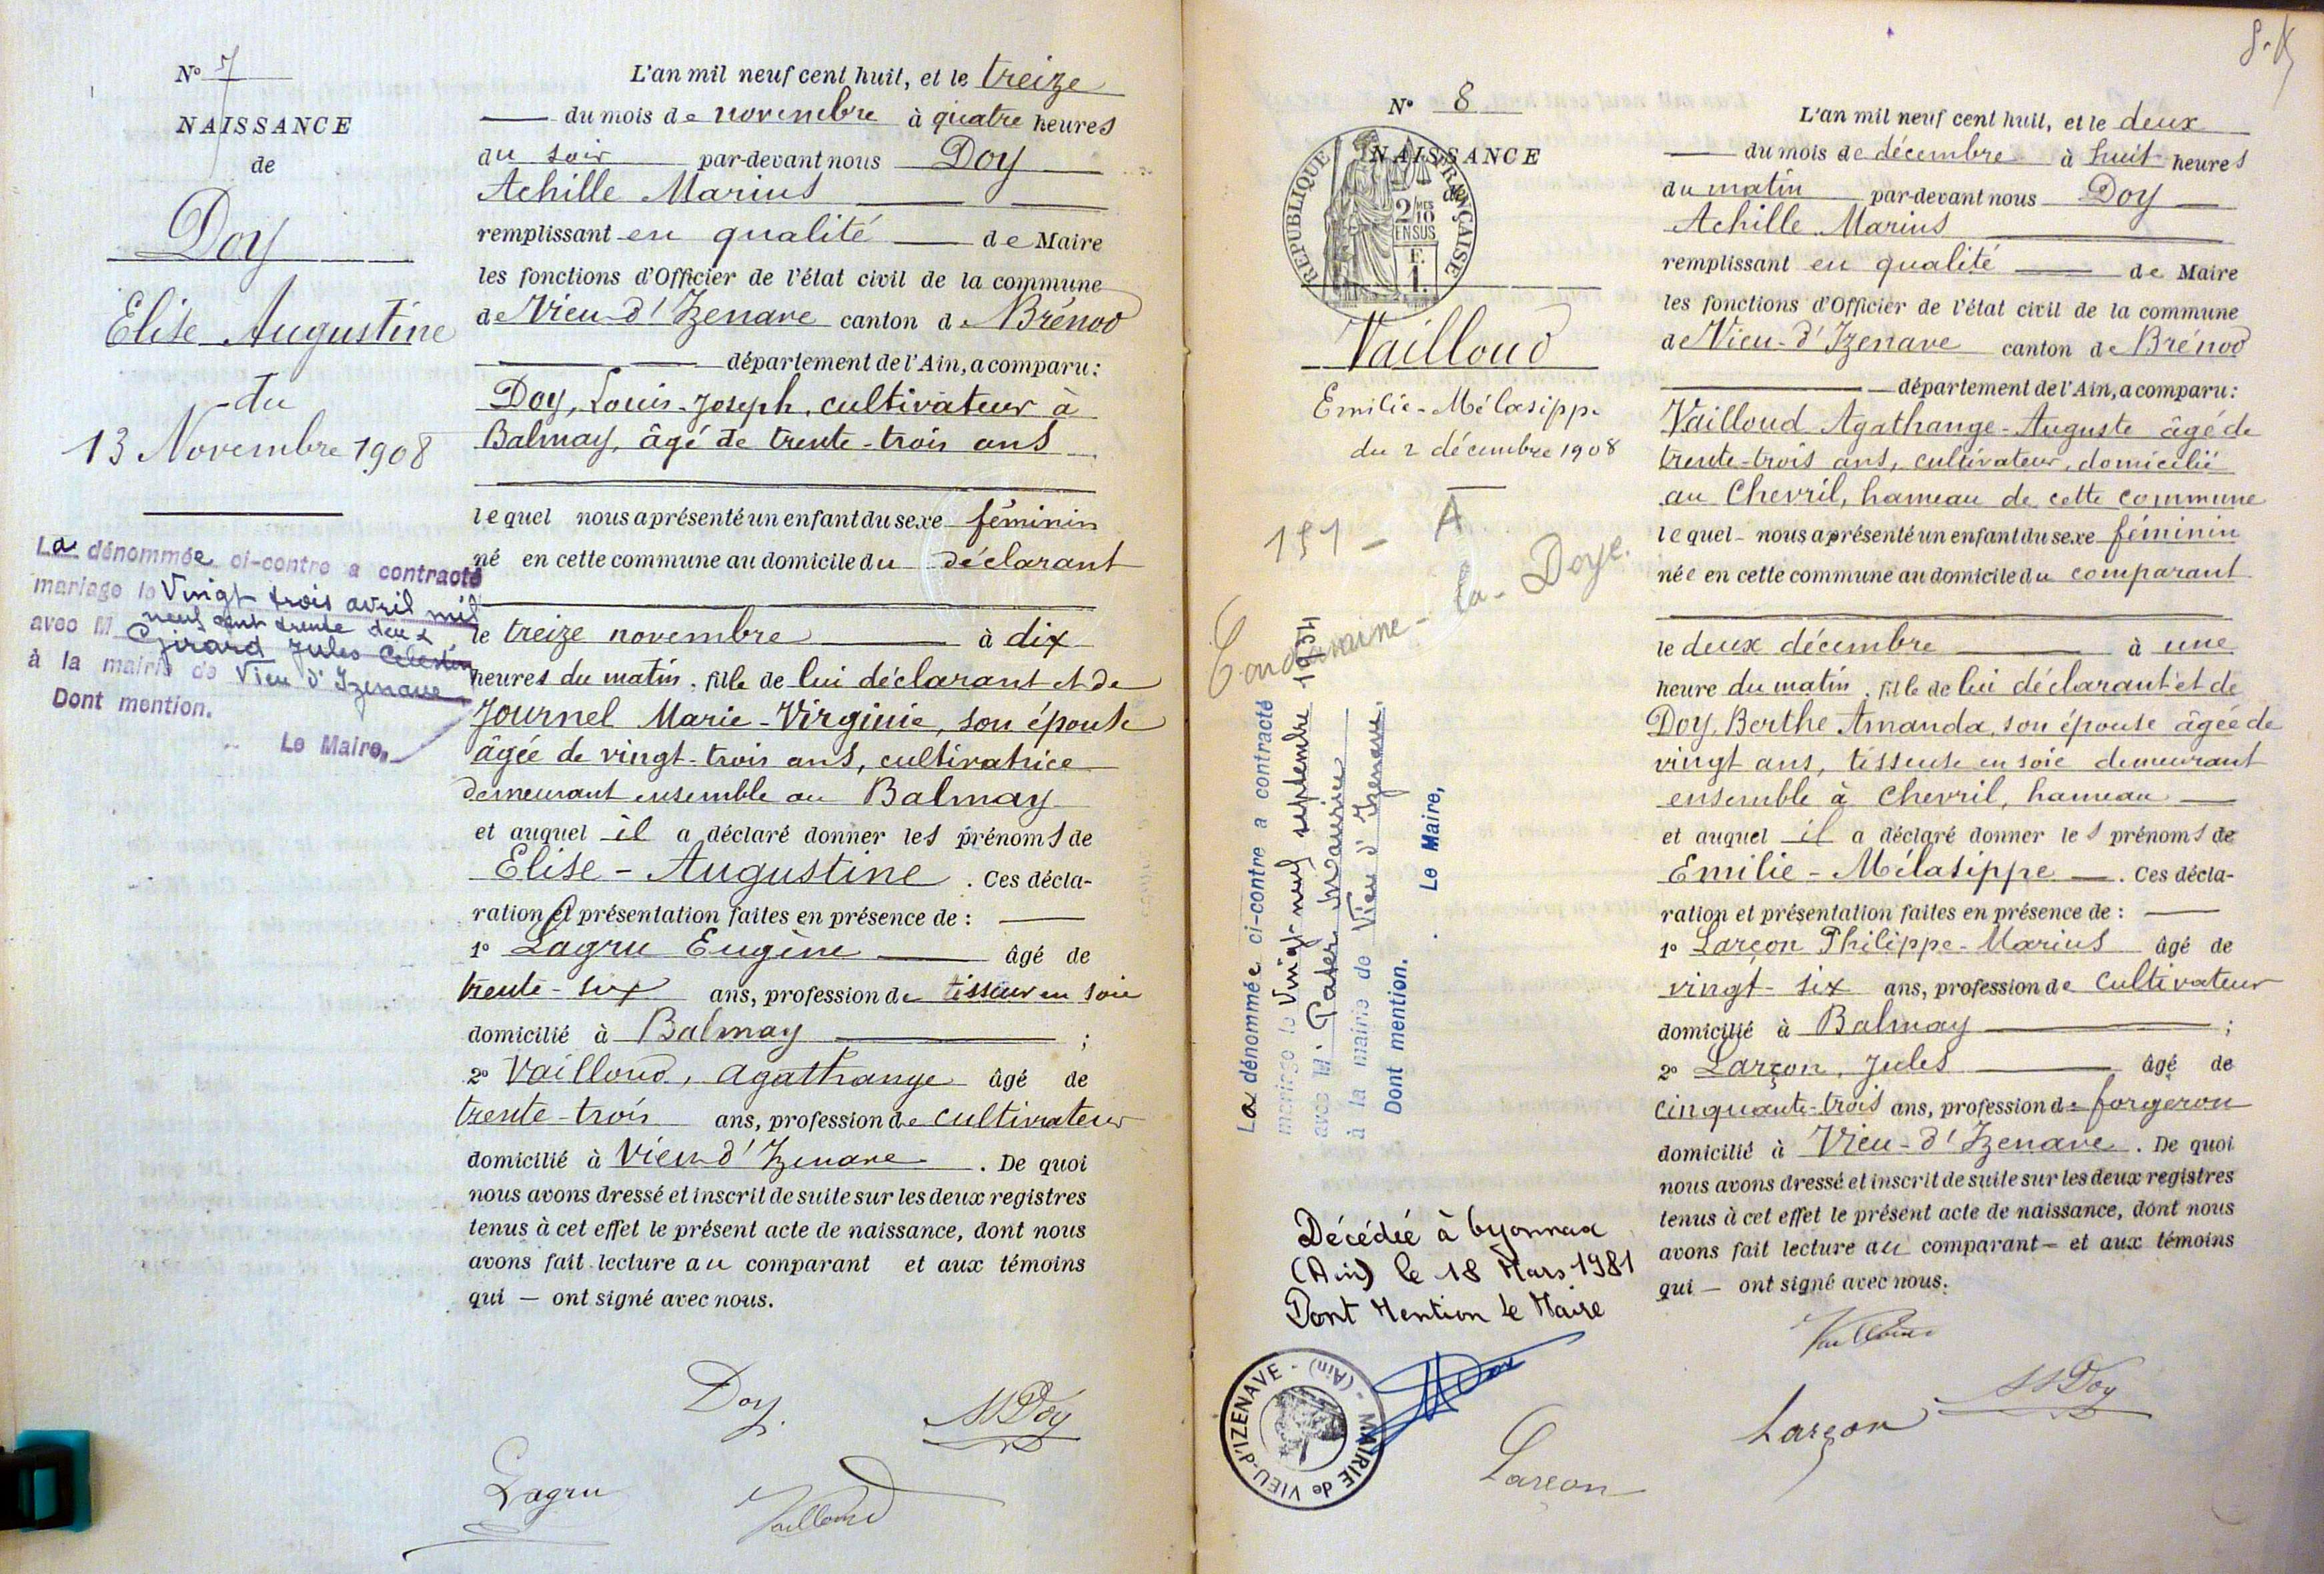 N° 7
NAISSANCE
de
Doy
Elise Augustine
du
13 Novembre 1908
La dénommée ci-contre a contracté
mariage le Vingt trois avril mil
neuf cent trente deux
avec M Girard Jules Celestin
à la mairie de Vieu d'Izenave
Dont mention.
Le Maire,
L'an mil neuf cent huit, et le treize
du mois de novembre à quatre heures
du soir par-devant nous Doy
Achille Marius
remplissant en qualité de Maire
les fonctions d'Officier de l'état civil de la commune
de Vieu-d'Izenave canton de Brénod
département de l'Ain, a comparu :
Doy, Louis-Joseph, cultivateur à
Balmay, âgé de trente-trois ans
lequel nous a présenté un enfant du sexe féminin
né en cette commune au domicile du déclarant
le treize novembre à dix
heures du matin, fille de lui déclarant et de
Journel Marie-Virginie, son épouse
âgée de vingt-trois ans, cultivatrice
demeurant ensemble au Balmay
et auquel il a déclaré donner les prénoms de
Elise - Augustine. Ces décla-
ration et présentation faites en présence de :
1° Lagru Eugène âgé de
trente-six ans, profession de tisseur en soie
domicilié à Balmay ;
2° Vailloud, Agathange âgé de
trente-trois ans, profession de cultivateur
domicilié à Vieu d'Izenave. De quoi
nous avons dressé et inscrit de suite sur les deux registres
tenus à cet effet le présent acte de naissance, dont nous
avons fait lecture au comparant et aux témoins
qui — ont signé avec nous.
Doy.
AMDoy
Lagru
Vailloud
N° 8
NAISSANCE
de
REPUBLIQUE FRANÇAISE
2/10 MES
EN SUS
F.
1.
Vailloud
Emilie-Mélasippe
du 2 décembre 1908
151 - A
Condamine-la-Doye.
La dénommée ci-contre a contracté
mariage le Vingt-neuf septembre 1934
avec M. Pater Maurice
à la mairie de Vieu d'Izenave.
Dont mention.
Le Maire,
Décédée à Oyonnax
(Ain) le 18 Mars 1981
Dont Mention Le Maire
MAIRIE de VIEU-d'IZENAVE - (Ain) -
L'an mil neuf cent huit, et le deux
du mois de décembre à huit heures
du matin par-devant nous Doy
Achille Marius
remplissant en qualité de Maire
les fonctions d'Officier de l'état civil de la commune
de Vieu-d'Izenave canton de Brénod
département de l'Ain, a comparu :
Vailloud Agathange-Auguste âgé de
trente-trois ans, cultivateur, domicilié
au Chevril, hameau de cette commune
lequel nous a présenté un enfant du sexe féminin
née en cette commune au domicile du comparant
le deux décembre à une
heure du matin, fille de lui déclarant et de
Doy Berthe Amanda, son épouse âgée de
vingt ans, tisseuse en soie demeurant
ensemble à Chevril, hameau
et auquel il a déclaré donner les prénoms de
Emilie - Mélasippe. Ces décla-
ration et présentation faites en présence de :
1° Larçon Philippe-Marius âgé de
vingt-six ans, profession de cultivateur
domicilié à Balmay ;
2° Larçon, Jules âgé de
cinquante-trois ans, profession de forgeron
domicilié à Vieu-d'Izenave. De quoi
nous avons dressé et inscrit de suite sur les deux registres
tenus à cet effet le présent acte de naissance, dont nous
avons fait lecture au comparant — et aux témoins
qui — ont signé avec nous.
Vailloud
AMDoy
Larçon
Larçon